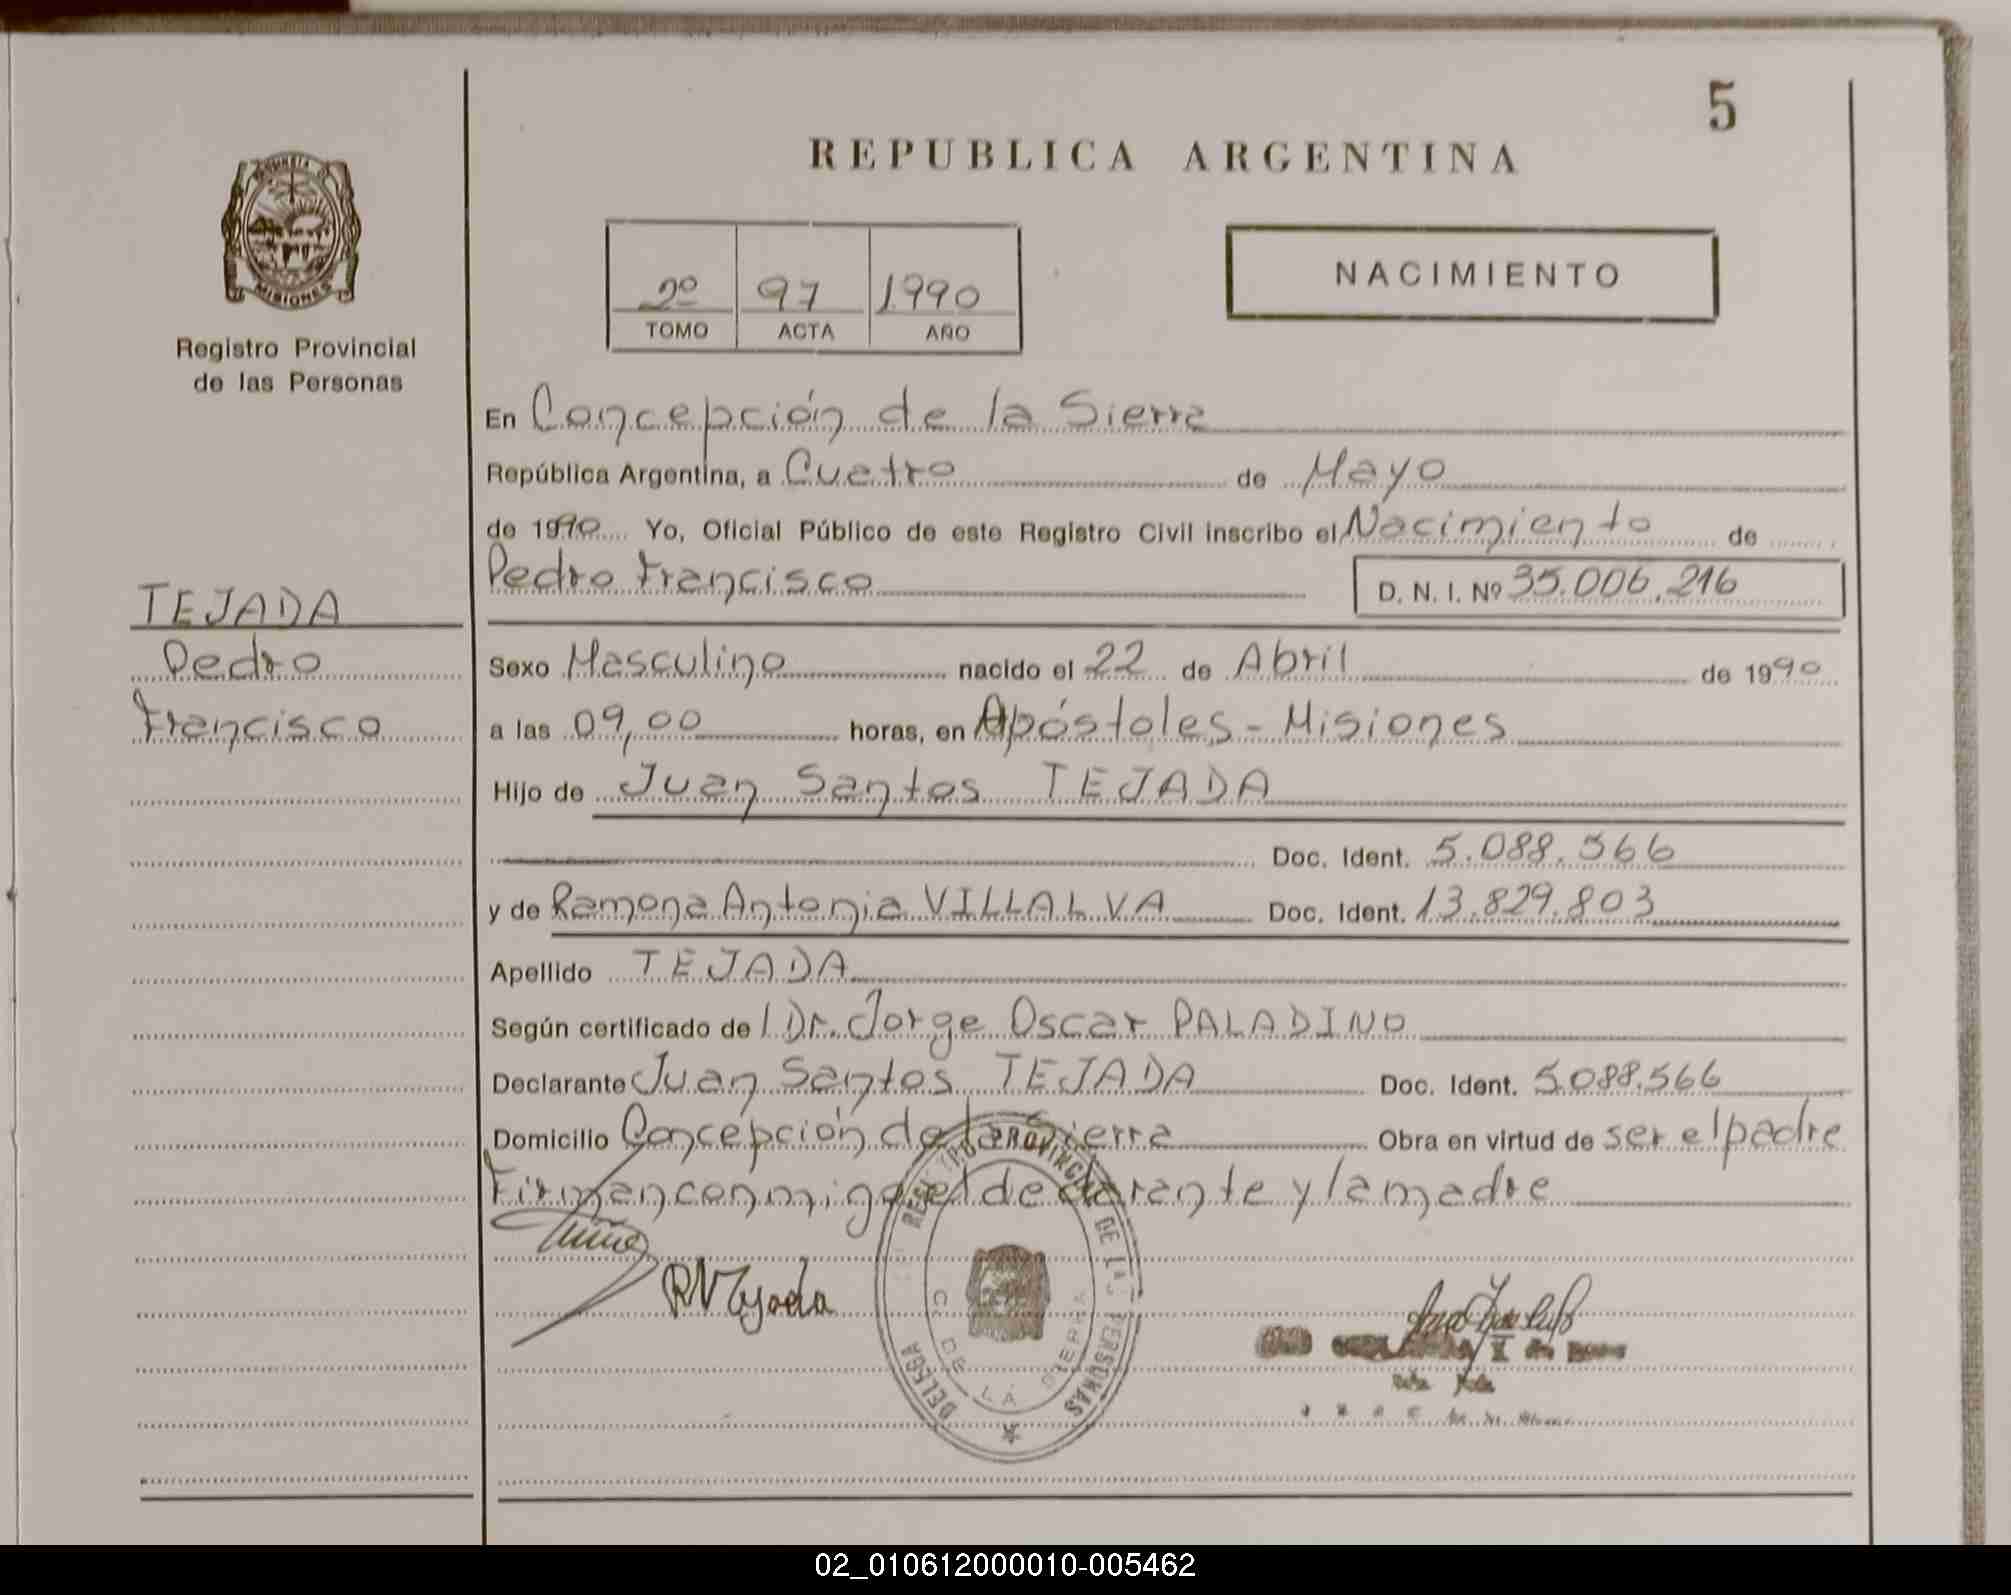 5
REPUBLICA ARGENTINA
MISIONES
2º 97 1990
TOMO ACTA AÑO
NACIMIENTO
Registro Provincial
de las Personas
En Concepción de la Sierra
República Argentina, a Cuatro de Mayo
de 1990 Yo, Oficial Público de este Registro Civil inscribo el Nacimiento de
Pedro Francisco D. N. I. Nº 35.006.216
TEJADA
Pedro
Francisco
Sexo Masculino nacido el 22 de Abril de 1990
a las 09,00 horas, en Apóstoles - Misiones
Hijo de Juan Santos TEJADA
Doc. Ident. 5.088.566
y de Ramona Antonia VILLALVA Doc. Ident. 13.829.803
Apellido TEJADA
Según certificado de Dr. Jorge Oscar PALADINO
Declarante Juan Santos TEJADA Doc. Ident. 5.088.566
Domicilio Concepción de la Sierra Obra en virtud de ser el padre
Firman conmigo el declarante y la madre
REGISTRO PROVINCIAL DE LAS PERSONAS
C. DE LA SIERRA
02_010612000010-005462